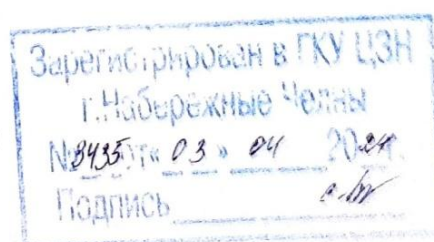 Зарегистрирован в ГКУ ЦЗН
г.Набережные Челны
№8435от« 03 » 04 2024г.
Подпись